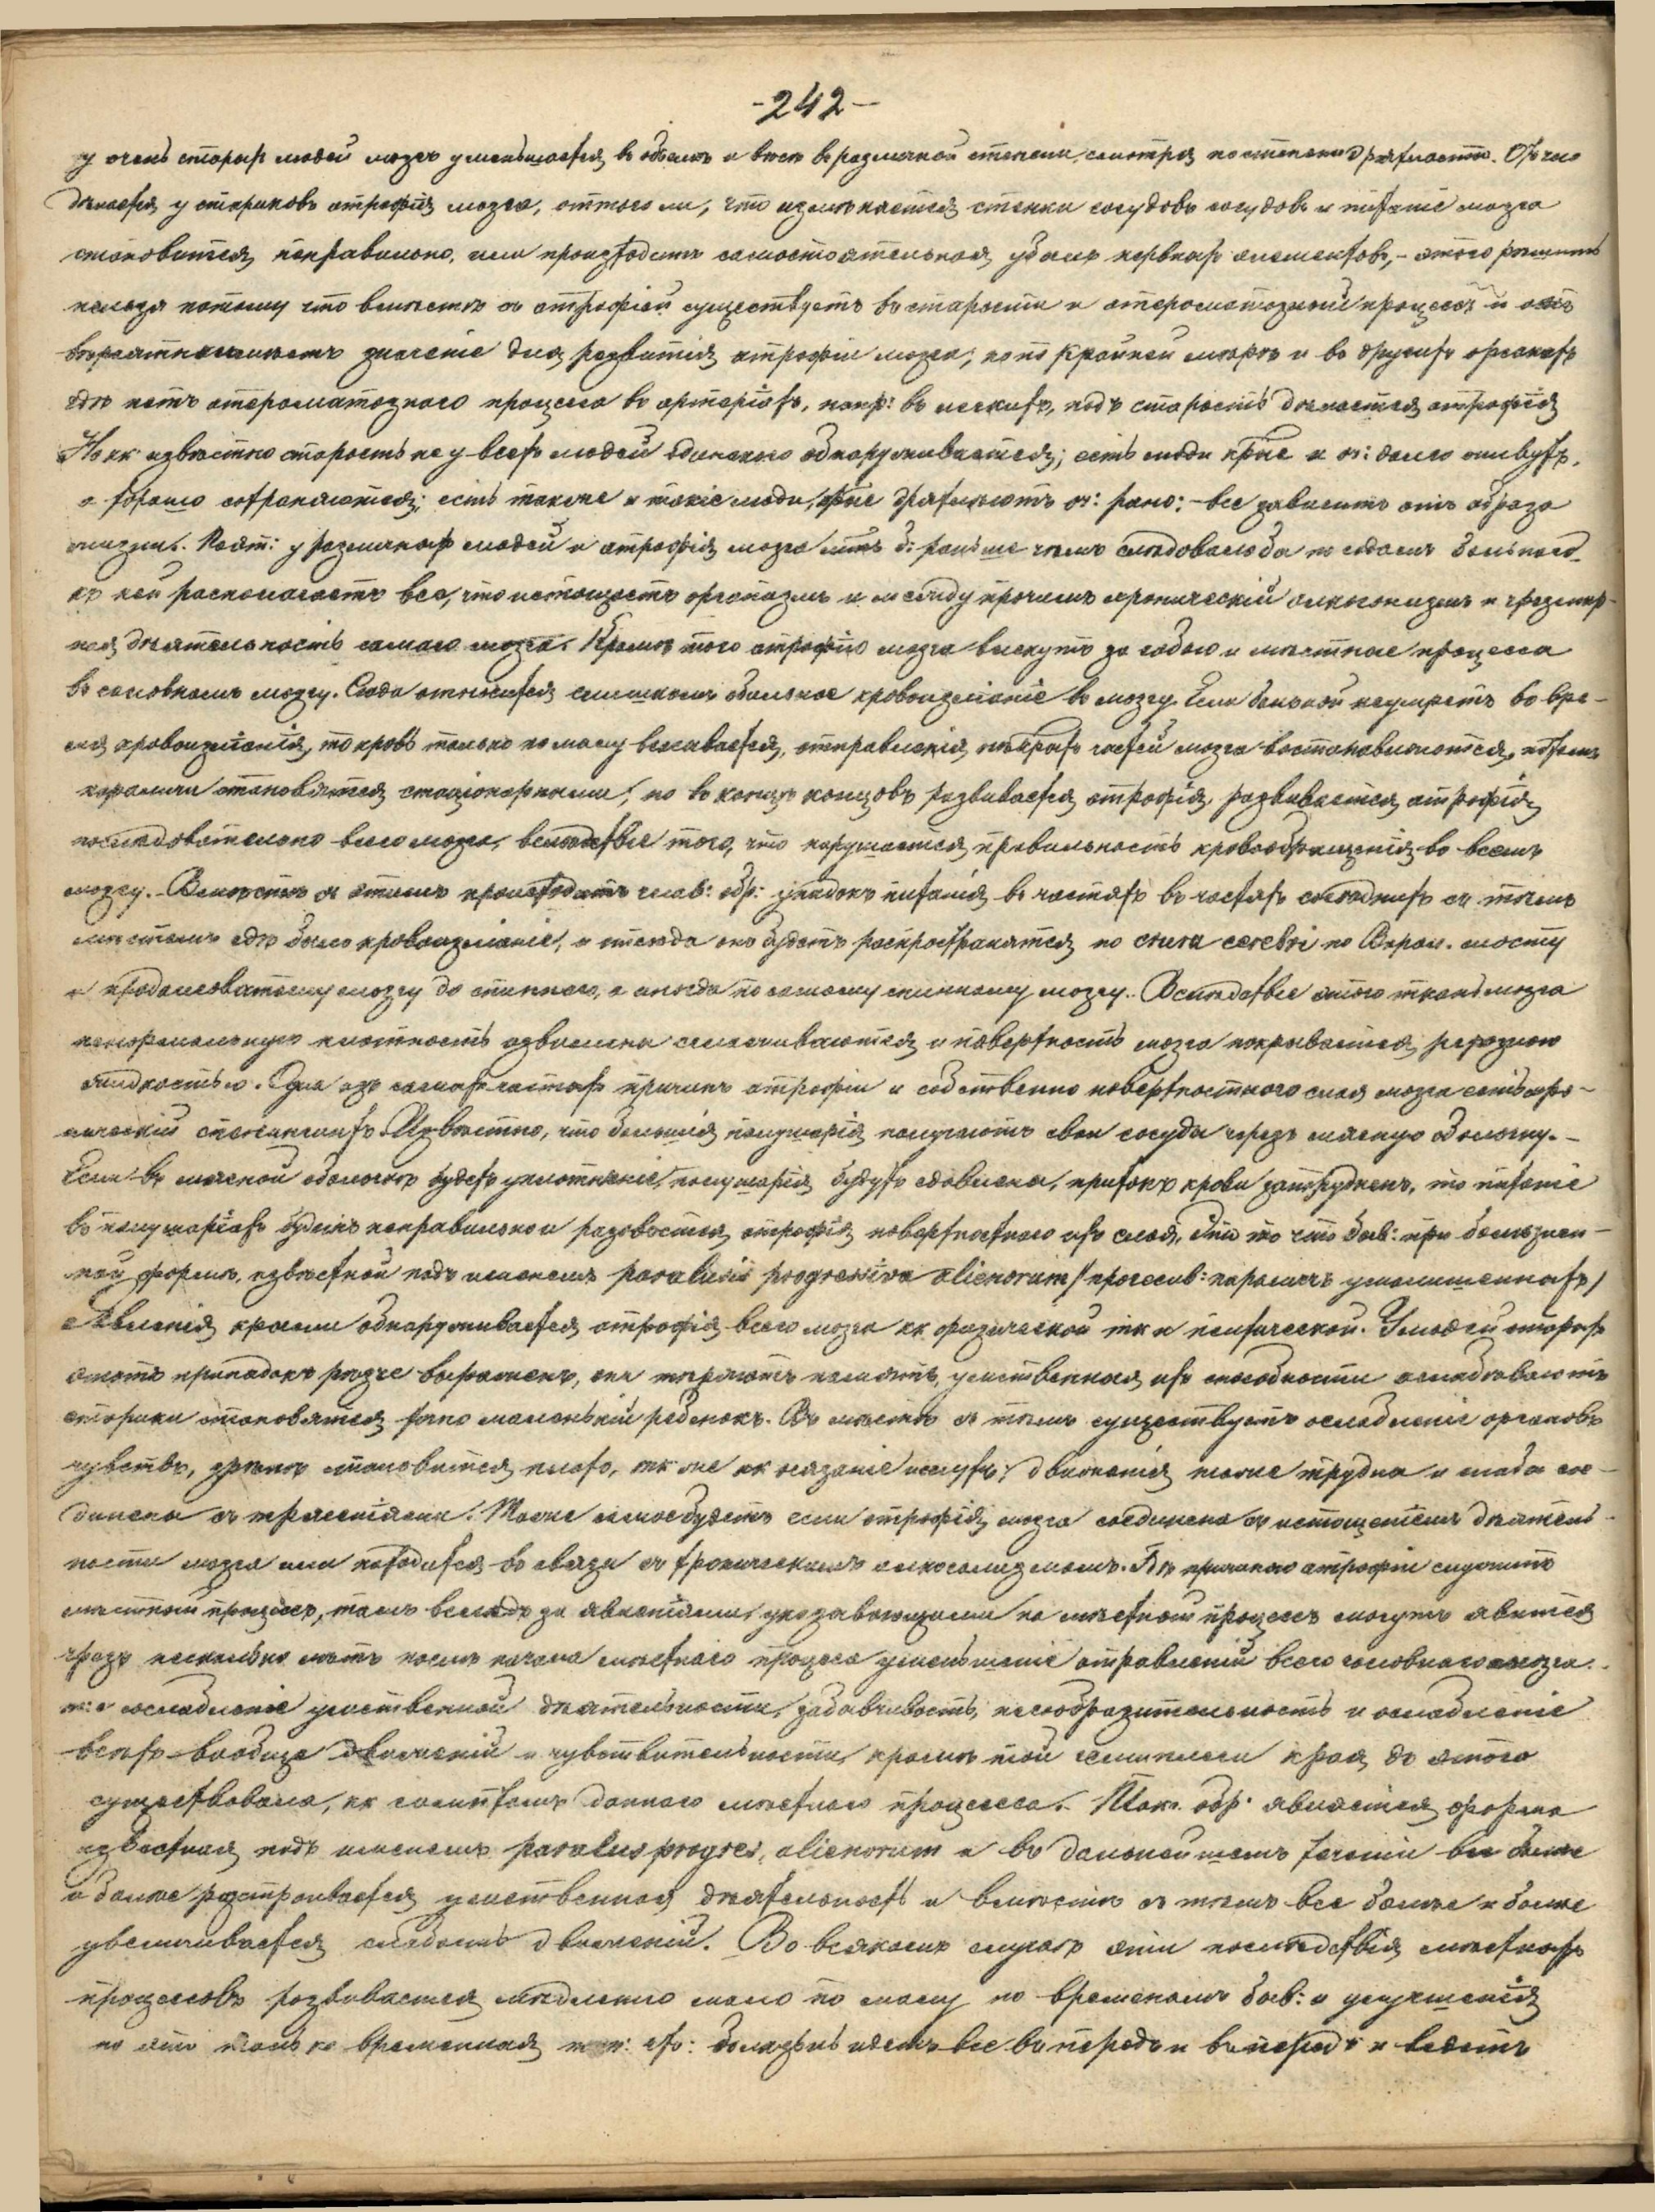 -242-
у очень старыхъ людей мозгъ уменьшается въ объемѣ и вѣсѣ въ различной степени, смотря по степени дряхлости. Отъ чего
дѣлается у стариковъ атрофія мозга, оттого ли, что измѣняются стенки сосудовъ сосудовъ и питаніе мозга
становится неправильно, или происходитъ самостоятельная убыль нервныхъ элементовъ, - этого рѣшить
нельзя потому что вмѣстѣ съ атрофіей существуетъ въ старости и атероматозный процессъ и онъ
вѣроятно имѣетъ значеніе для развитія атрофіи мозга; но по крайней мѣрѣ и въ другихъ органахъ
гдѣ нетъ атероматознаго процесса въ артеріяхъ, напр: въ легкихъ, подъ старость дѣлается атрофія
Но кк извѣстно старость не у всехъ людей одинаково обнаруживается; есть люди кріе и оч: долго живутъ,
и хорошо сохраняются; есть также и такіе люди, кріе дряхлѣютъ оч: рано: - все зависитъ отъ образа
жизни. Поэт: у различныхъ людей и атрофія мозга б: раньше чѣмъ слѣдовало бы по годамъ больного
къ ней располагаетъ все, что истощаетъ организмъ и между прочимъ хроническій алкоголизмъ и чрезмѣр-
ная дѣятельность самаго мозга. Кромѣ того атрофію мозга влекутъ за собою и мѣстные процессы
въ головномъ мозгу. Сюда относится слишкомъ обильное кровоизліяніе въ мозгу. Если больной неумретъ во вре-
мя кровоизліянія, то кровь только по малу всасывается, отправленія нѣкрыхъ частей мозга востановляются, потомъ
параличи становятся стаціонарными, но въ концѣ концовъ развивается атрофія, развивается атрофія
послѣдовательно всего мозга, вслѣдствіе того, что нарушается правильность кровообращенія во всемъ
мозгу. Вмѣстѣ съ этимъ происходитъ глав: обр: упадокъ питанія въ частяхъ въ частяхъ сосѣднихъ съ тѣмъ
мѣстомъ гдѣ было кровоизліяніе, и отсюда оно будетъ распространятся по crura cerebri по Варол. мосту
и продолговатому мозгу до спинного, а иногда по самому спинному мозгу. Вслѣдствіе этого ткань мозга
ненормальную плотность извилины сглаживаются и поверхность мозга покрывается серозною
жидкостью. Одна изъ самыхъ частыхъ причинъ атрофіи и собственно поверхностнаго слоя мозга есть хро-
ническій менингитъ. Извѣстно, что большія полушарія получаютъ свои сосуды чрезъ мягкую оболочку. -
Если въ мягкой оболочкѣ будетъ уплотненіе, полушарія будутъ сдавлены, притокъ крови затрудненъ, то питаніе
въ полушаріяхъ будетъ неправильно и разовьется атрофія поверхностнаго ихъ слоя, Это то что быв: при болѣзнен-
ной формѣ, извѣстной подъ именемъ paralusis progressiva alienorum / прогесив: параличъ умалишенныхъ /
Явленія крыми обнаруживается атрофія всего мозга кк физической тк и психической. У людей старыхъ
этотъ припадокъ рѣзче выраженъ, они теряютъ память, умственныя ихъ способности ослабѣваютъ
старики становятся точно маленькій ребенокъ. Въ мѣстѣ съ тѣмъ существуетъ ослабленіе органовъ
чувствъ, зрѣніе становится плохо, тк же кк осязаніе и слухъ; движенія также трудны и слабы сое-
динены съ трясеніями. Тоже самое будетъ если атрофія мозга соединена съ истощеніемъ дѣятель-
ности мозга или находится въ связи съ хроническимъ алкоголизмомъ. Гдѣ причиною атрофіи служитъ
мѣстный процессъ, тамъ вслѣдъ за явленіями, указывающими на мѣстный процессъ могутъ явится
чрезъ несколько лѣтъ послѣ начала мѣстнаго процеса уменьшеніе отправленій всего головнаго мозга.
т: е ослабленіе умственной дѣятельности, забывчивость, несообразительность и ослабленіе
всѣхъ вообще движеній и чувствительности, кромѣ той гемиплегіи края до этого
существовала, кк симптомъ даннаго мѣстнаго процесса. Так. обр. является форма
извѣстная подъ именемъ paralus progres. alienorum и въ дальнейшемъ теченіи все болѣе
и болѣе разстраивается умственная дѣятельность и вмѣстѣ съ тѣмъ все болѣе и болѣе
увеличивается слабость движеній. Во всякомъ случаѣ эти послѣдствія мѣстныхъ
процессовъ развиваются медленно мало по малу по временамъ быв: и улучшенія
но это только временная болѣзнь идетъ все впередъ и впередъ и ведетъ